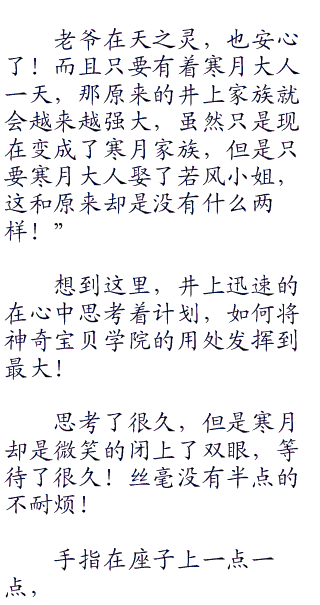 老爷在天之灵，也安心
了！而且只要有着寒月大人
一天，那原来的井上家族就
会越来越强大，虽然只是现
在变成了寒月家族，但是只
要寒月大人娶了若风小姐，
这和原来却是没有什么两
样！”
想到这里，井上迅速的
在心中思考着计划，如何将
神奇宝贝学院的用处发挥到
最大！
思考了很久，但是寒月
却是微笑的闭上了双眼，等
待了很久！丝毫没有半点的
不耐烦！
手指在座子上一点一
点，